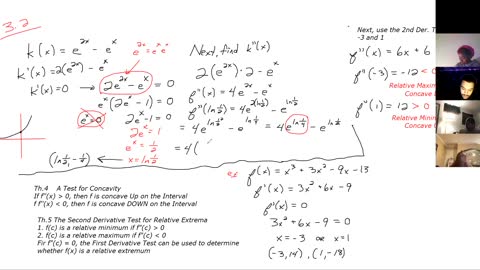 3.2
k(x) = e^{2x} - e^x
e^{2x} = e^x e^x
k'(x) = 2(e^{2x}) - e^x
k'(x) = 0
2e^{2x} - e^x = 0
e^x(2e^x - 1) = 0
e^x = 0
2e^x - 1 = 0
2e^x = 1
e^x = 1/2
x = ln 1/2
(ln 1/2, -1/4)
Next, find k''(x)
2(e^{2x})·2 - e^x
f''(x) = 4e^{2x} - e^x
f''(ln 1/2) = 4e^{2(ln 1/2)} - e^{ln 1/2}
= 4e^{ln 1/4} - e^{ln 1/2} = 4e^{ln 1/4} - e^{ln 1/2}
= 4(
Next, use the 2nd Der. T
-3 and 1
f''(x) = 6x + 6
f''(-3) = -12 < 0
Relative Maximum
Concave
f''(1) = 12 > 0
Relative Minim
Concave
Th.4 A Test for Concavity
If f''(x) > 0, then f is concave Up on the Interval
if f''(x) < 0, then f is concave DOWN on the Interval
Th.5 The Second Derivative Test for Relative Extrema
1. f(c) is a relative minimum if f''(c) > 0
2. f(c) is a relative maximum if f''(c) < 0
Fir f''(c) = 0, the First Derivative Test can be used to determine
whether f(x) is a relative extremum
ex
f(x) = x^3 + 3x^2 - 9x - 13
f'(x) = 3x^2 + 6x - 9
f'(x) = 0
3x^2 + 6x - 9 = 0
x = -3 or x = 1
(-3, 14), (1, -18)